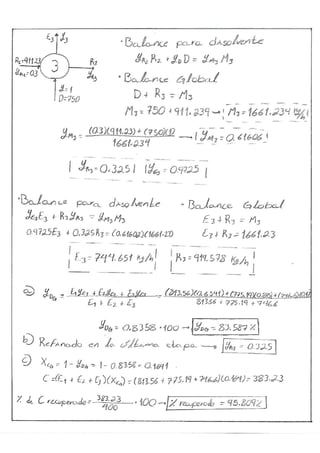 E3 y3
R2=911.23
yR2=0.3
3
R3
yR3
y=1
D=750
• Balance para disolvente
yR2 R2 + yD D = yM3 M3
• Balance Global
D + R3 = M3
M3 = 750 + 911.234 → M3 = 1661.234 kg/h
yM3 = (0.3)(911.23) + (750)(1) / 1661.234 → yM3 = 0.61606
yR3 = 0.325 yE3 = 0.9725
• Balance para disolvente
yE3 E3 + R3 yR3 = yM3 M3
0.9725E3 + 0.325R3 = (0.6160)(1661.23)
• Balance Global
E3 + R3 = M3
E3 + R3 = 1661.23
E3 = 744.651 kg/h R3 = 914.578 kg/h
a) yDa = E1yE1 + E2yE2 + E3yE3 / E1 + E2 + E3 =
813.56 + 775.19 + 746.6
yDa = 0.8358 · 100 → yDa = 83.587 %
b) Refinado en la última etapa → yR3 = 0.325
c) Xca = 1 - yDa = 1 - 0.8358 = 0.1641
C = (E1 + E2 + E3)(Xca) = (813.56 + 775.19 + 746.6)(0.1641) = 383.23
% de C recuperado = 383.23 / 400 · 100 → % recuperado = 95.809%